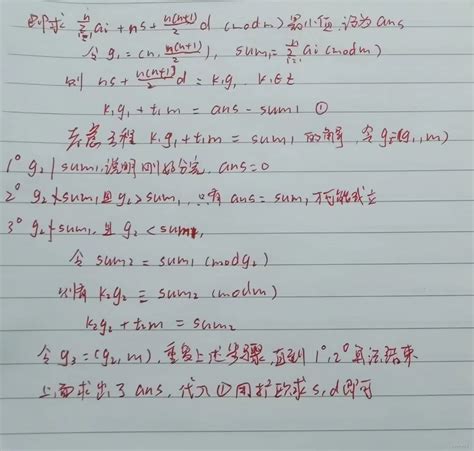 即求 $\sum_{i=1}^{n} a_i + ns + \frac{n(n+1)}{2} d \pmod{m}$ 最小值,设为 ans
令 $g_1 = (n, \frac{n(n+1)}{2})$, $sum_1 = \sum_{i=1}^{n} a_i \pmod{m}$
则 $ns + \frac{n(n+1)}{2} d = k_1 g_1$, $k_1 \in Z$
$k_1 g_1 + t_1 m = ans - sum_1$ ①
考虑方程 $k_1 g_1 + t_1 m = sum_1$ 的解, 令 $g_2 = (g_1, m)$
1° $g_2 | sum_1$, 说明刚好分完, ans=0
2° $g_2 \nmid sum_1$ 且 $g_2 > sum_1$, 只有 ans = $sum_1$ 才能成立
3° $g_2 \nmid sum_1$, 且 $g_2 < sum_1$,
令 $sum_2 = sum_1 \pmod{g_2}$
则有 $k_2 g_2 \equiv sum_2 \pmod{m}$
$k_2 g_2 + t_2 m = sum_2$
令 $g_3 = (g_2, m)$, 重复上述步骤,直到 1°, 2° 再次结束
上面求出了 ans, 代入①用扩欧求 s, d 即可